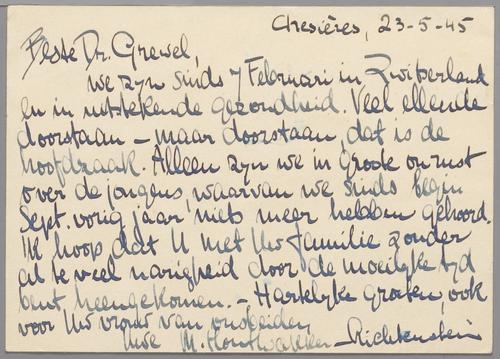 Chesières, 23-5-45
Beste Dr. Grewel,
we zyn sinds 7 Februari in Zwitserland
en in uitstekende gezondheid. Veel ellende
doorstaan – maar doorstaan, dat is de
hoofdzaak. Alleen zyn we in groote onrust
over de jongens, waarvan we sinds begin
Sept. vorig jaar niets meer hebben gehoord.
Ik hoop dat U met Uw familie zonder
al te veel narigheid door de moeilyke tyd
bent heengekomen. – Hartelyke groeten, ook
voor Uw vrouw van ons beiden
Uwe M.